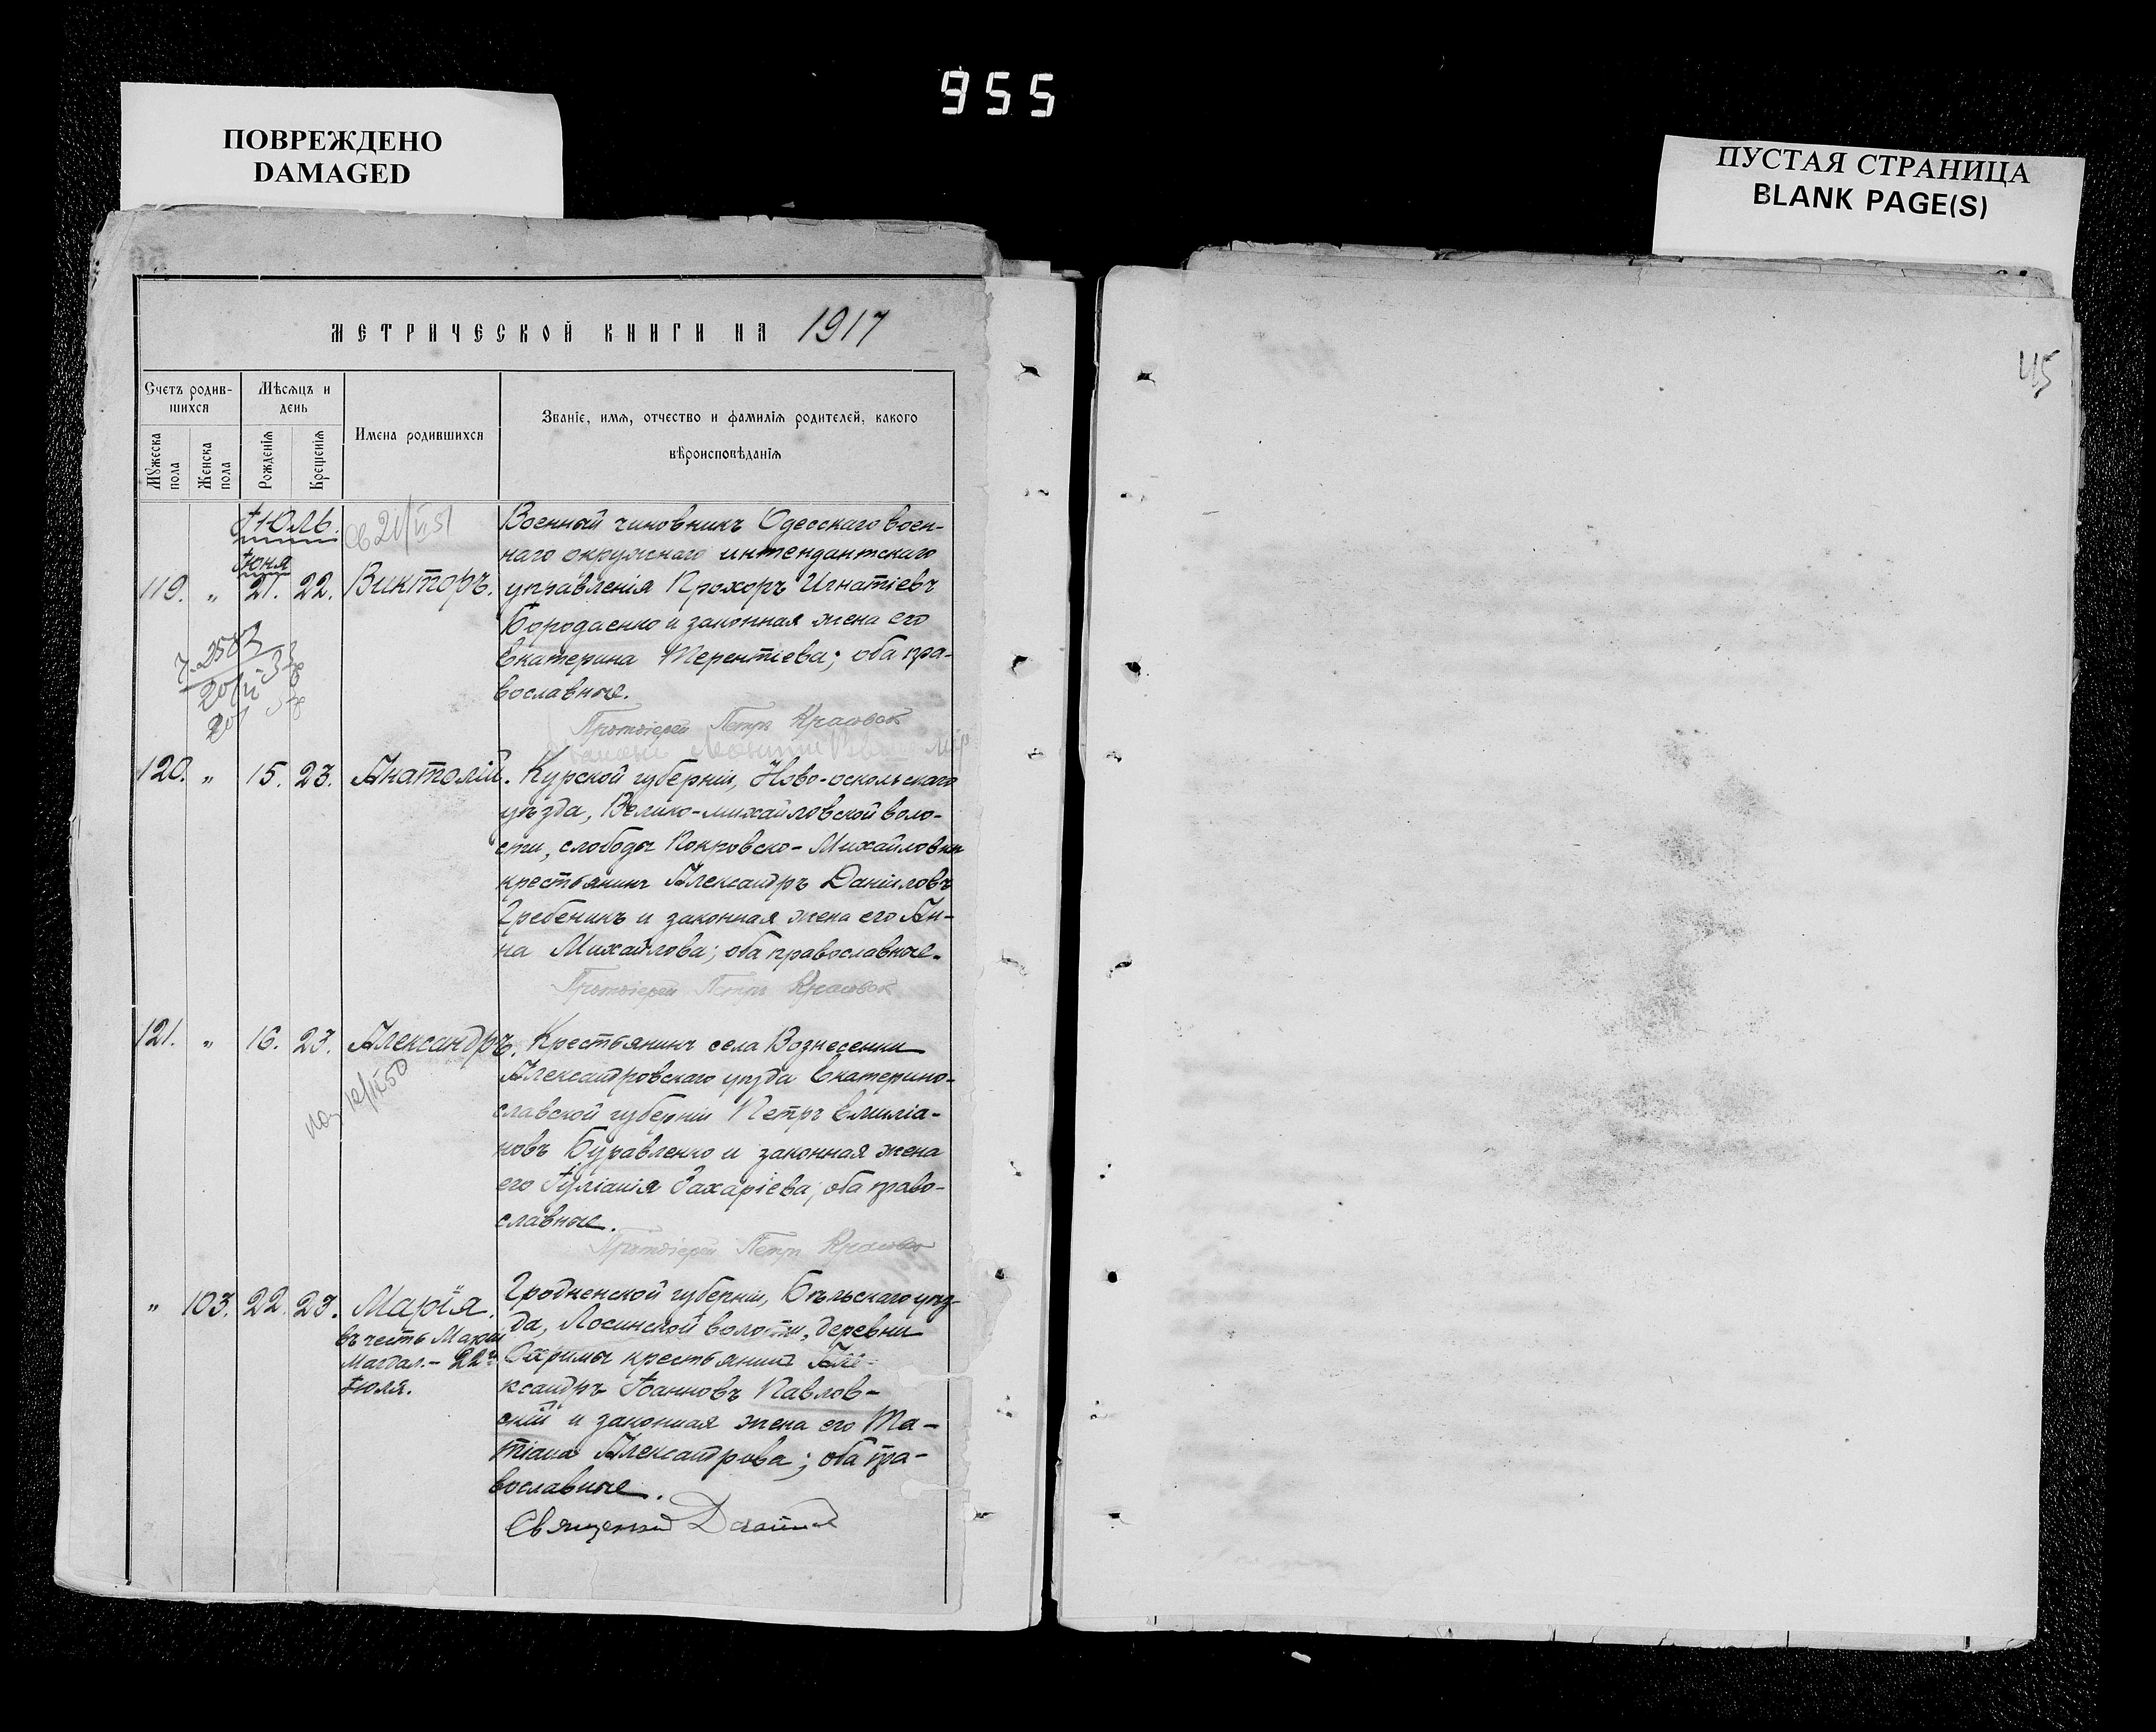 955
ПОВРЕЖДЕНО
DAMAGED
ПУСТАЯ СТРАНИЦА
BLANK PAGE(S)
45
МЕТРИЧЕСКОЙ КНИГИ НА 1917
Счетъ родив-
шихся
Мѣсяцъ и
день
Имена родившихся
Званіе, имя, отчество и фамилія родителей, какого
вѣроисповѣданія
Мужеска
пола
Женска
пола
Рожденія
Крещенія
Іюль.
Іюня
119. „ 21. 22. Викторъ.
Военный чиновникъ Одесскаго воен-
наго окружнаго интендантскаго
управленія Прохоръ Игнатіевъ
Бородаенко и законная жена его
Екатерина Терентіева; оба пра-
вославные.
Протоіерей Петръ
120. „ 15. 23. Анатолій.
Курской губерніи, Ново-оскольскаго
уѣзда, Велико-михайловской воло-
сти, слободы Покровско-Михайловки
крестьянинъ Александръ Даніиловъ
Гребеникъ и законная жена его Ан-
на Михайлова; оба православные.
Протоіерей Петръ
121. „ 16. 23. Александръ.
Крестьянинъ села Вознесенки
Александровскаго уѣзда Екатерино-
славской губерніи Петръ Емиліа-
новъ Буравленко и законная жена
его Іуліанія Захаріева; оба право-
славные.
Протоіерей Петръ
„ 103. 22. 23. Марія.
въ честь Маріи
Магдал. - 22го
Іюля.
Гродненской губерніи, Бѣльскаго уѣз-
да, Лосинской волости, деревни
крестьянинъ Але-
ксандръ Іоанновъ Павлов-
скій и законная жена его Та-
тіана Александрова; оба пра-
вославные.
Священникъ